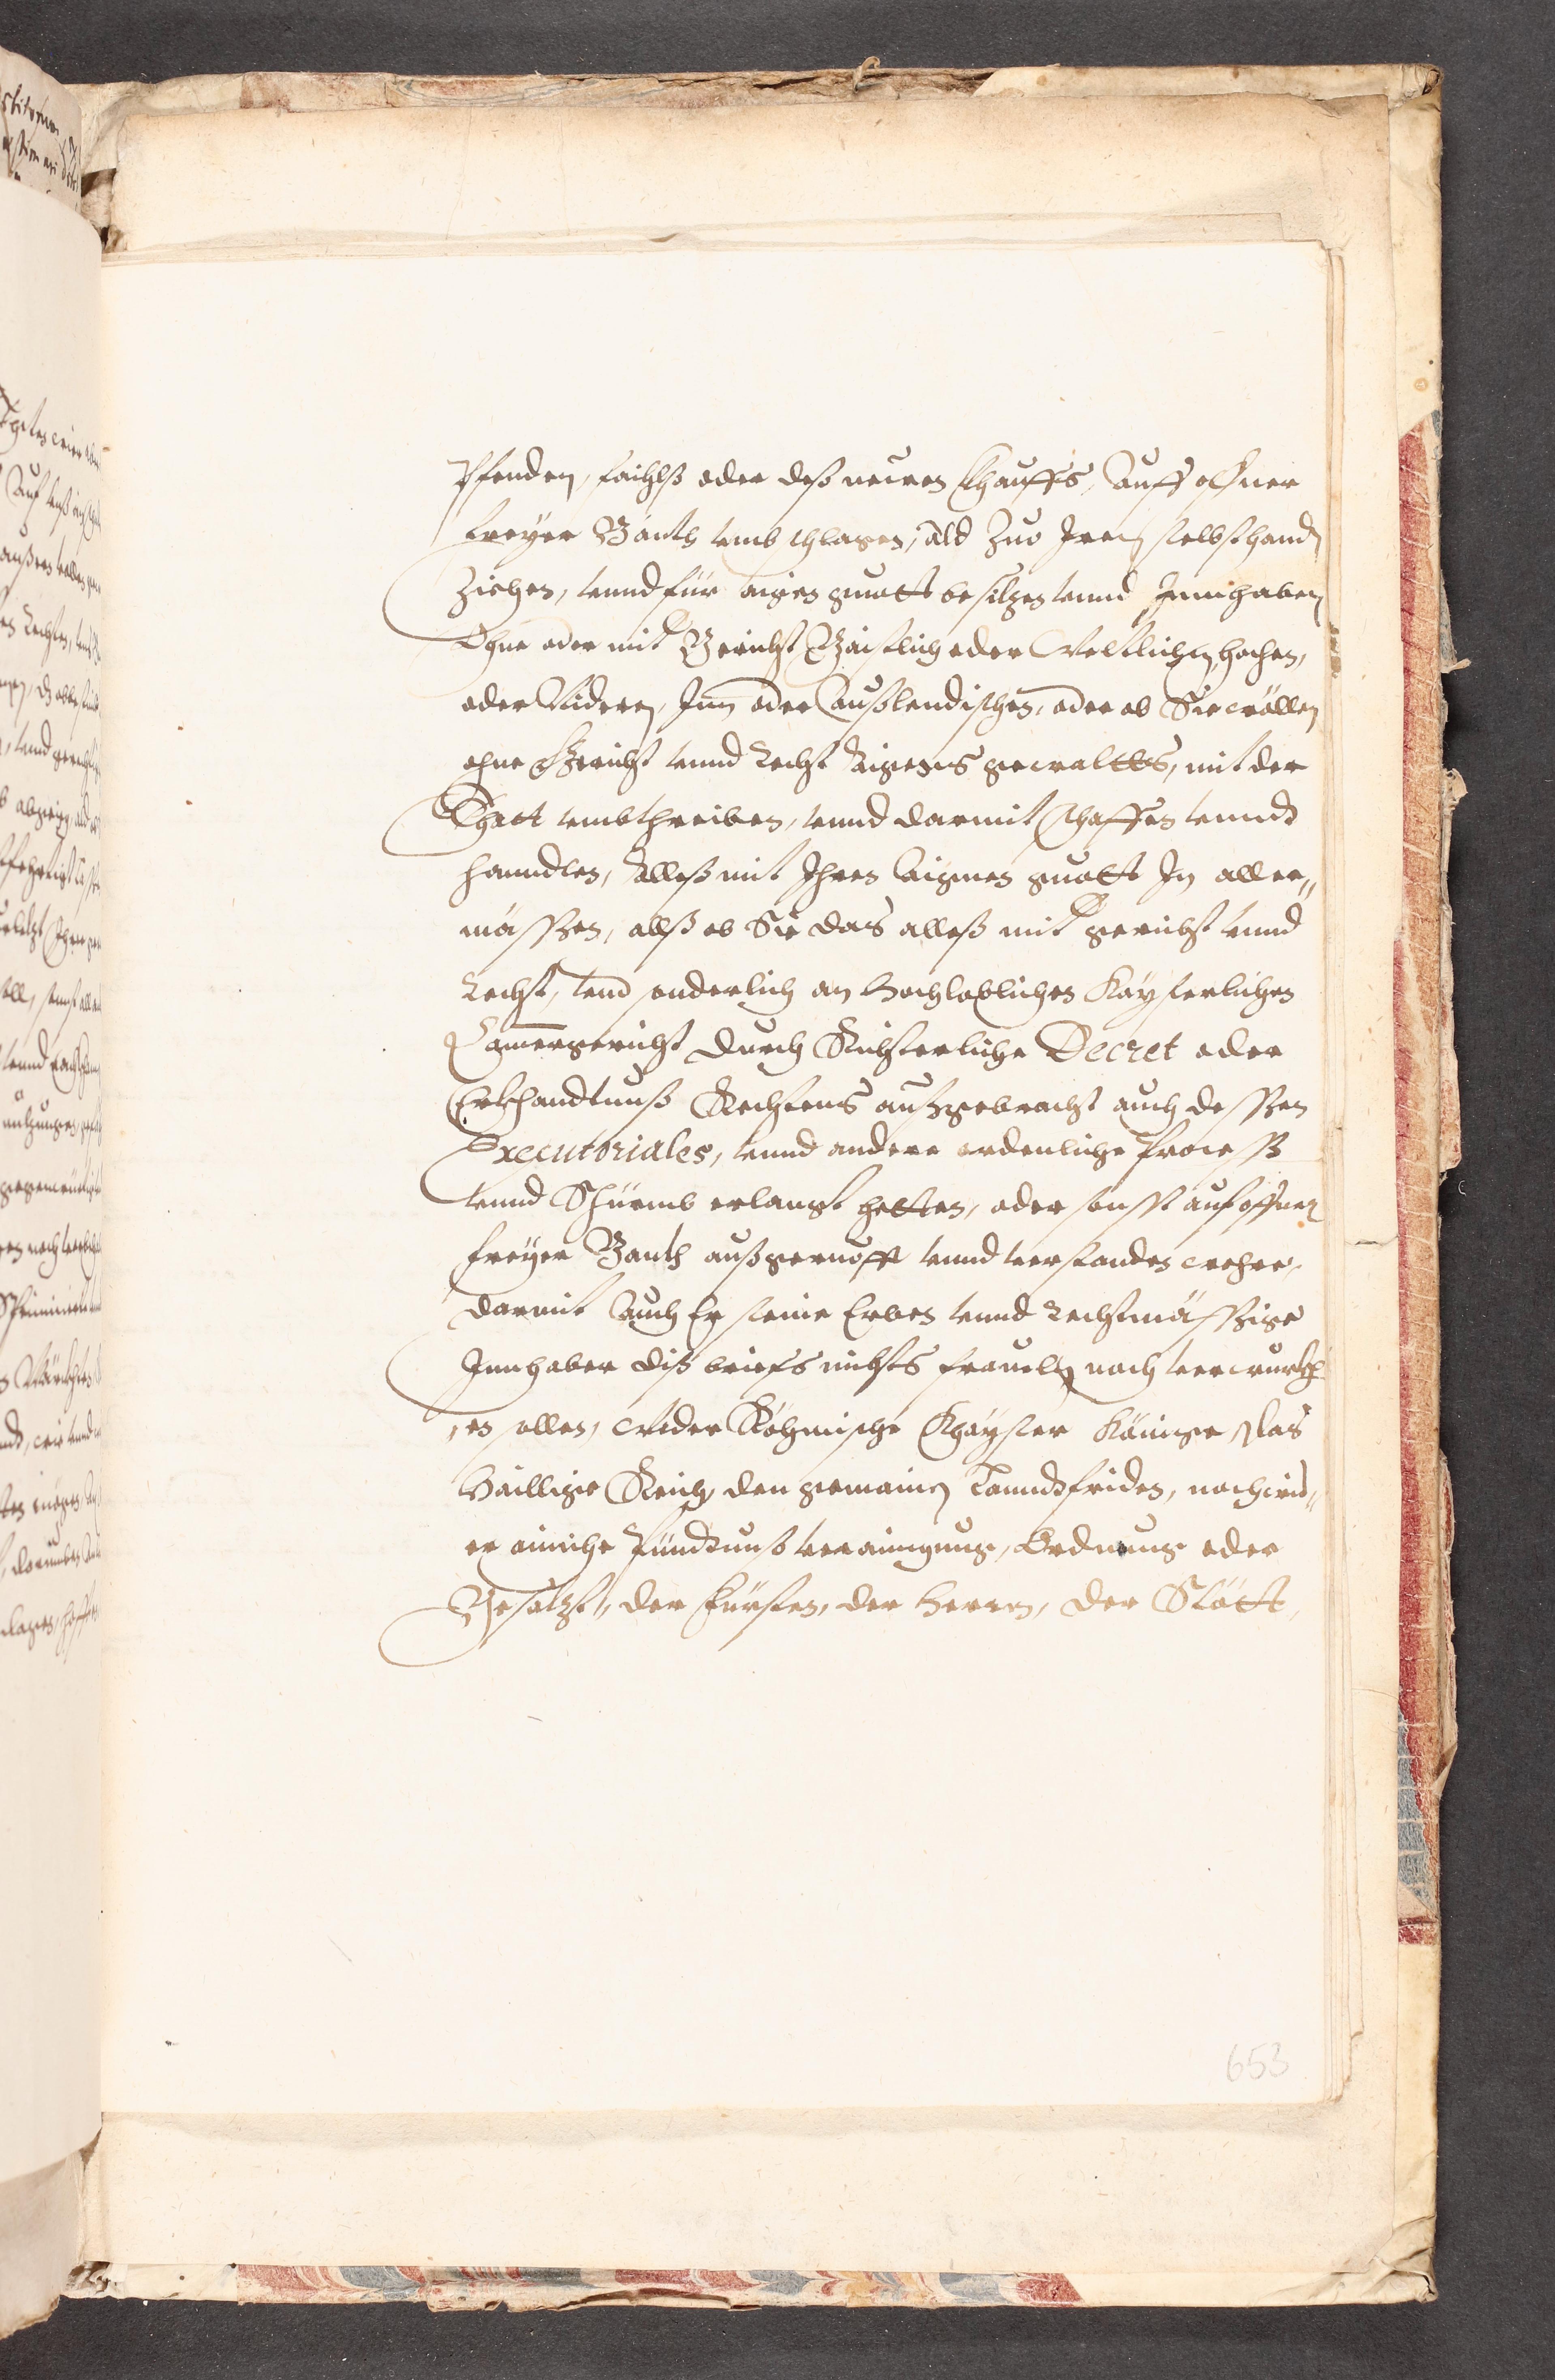 Pfenden, failß oder deß neuen Khauffs, Auff offner
freyer Gänth umb schlagen, ald Zuo Jren selbst handen
Ziehen, unnd für aigen guott besitzen unnd Jnnhaben
Ohne oder mit Gericht, Gaistlich oder Weltlichen, hochen,
oder Nideren, Jnn oder Außlendischen, oder ob Sie wöllen
ohne Gericht unnd Recht Aigens gewaltts, mit der
Thatt umbthreiben, unnd darmit schaffen unnd
hanndlen, Alleß mit Jhren Aignen guott Jn aller„
mässen, alß ob Sie das alleß mit gericht unnd
Recht, und sonderlich am Hochloblichen Kayserlichen
Camergericht durch Richterliche Decret oder
Erkhandtnuß Rechtens außgebracht auch dessen
Executoriales, unnd andere ordenliche Process
unnd Schürmb erlangt hetten, oder sonst auf offner
freyer Ganth außgeruofft unnd verstanden were,
darmit Auch Er seine Erben unnd Rechtmässige
Jnnhaber diß briefs nichts fräveln noch verwurkh„
„en sollen, wider Röhmische Khayser Könige, das
Haillige Reich, den gemainen Lanndtsfriden, noch wid„
er ainiche Pündtnuß verainigung, Ordnung oder
Gesatzt, der Fürsten, der Herren, der Stätt,
653